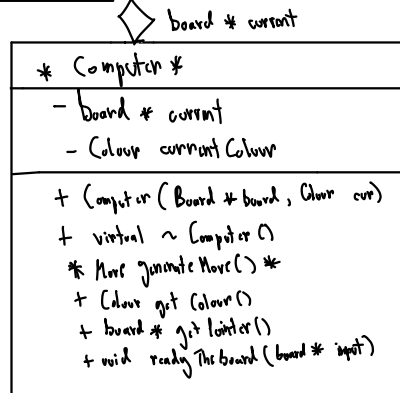 board * current
* Computer *
- board * current
- Colour currentColour
+ Computer (Board * board, Colour cur)
+ virtual ~ Computer ()
* Move generateMove() *
+ Colour get Colour()
+ board * getPointer()
+ void readyTheBoard (board * input)